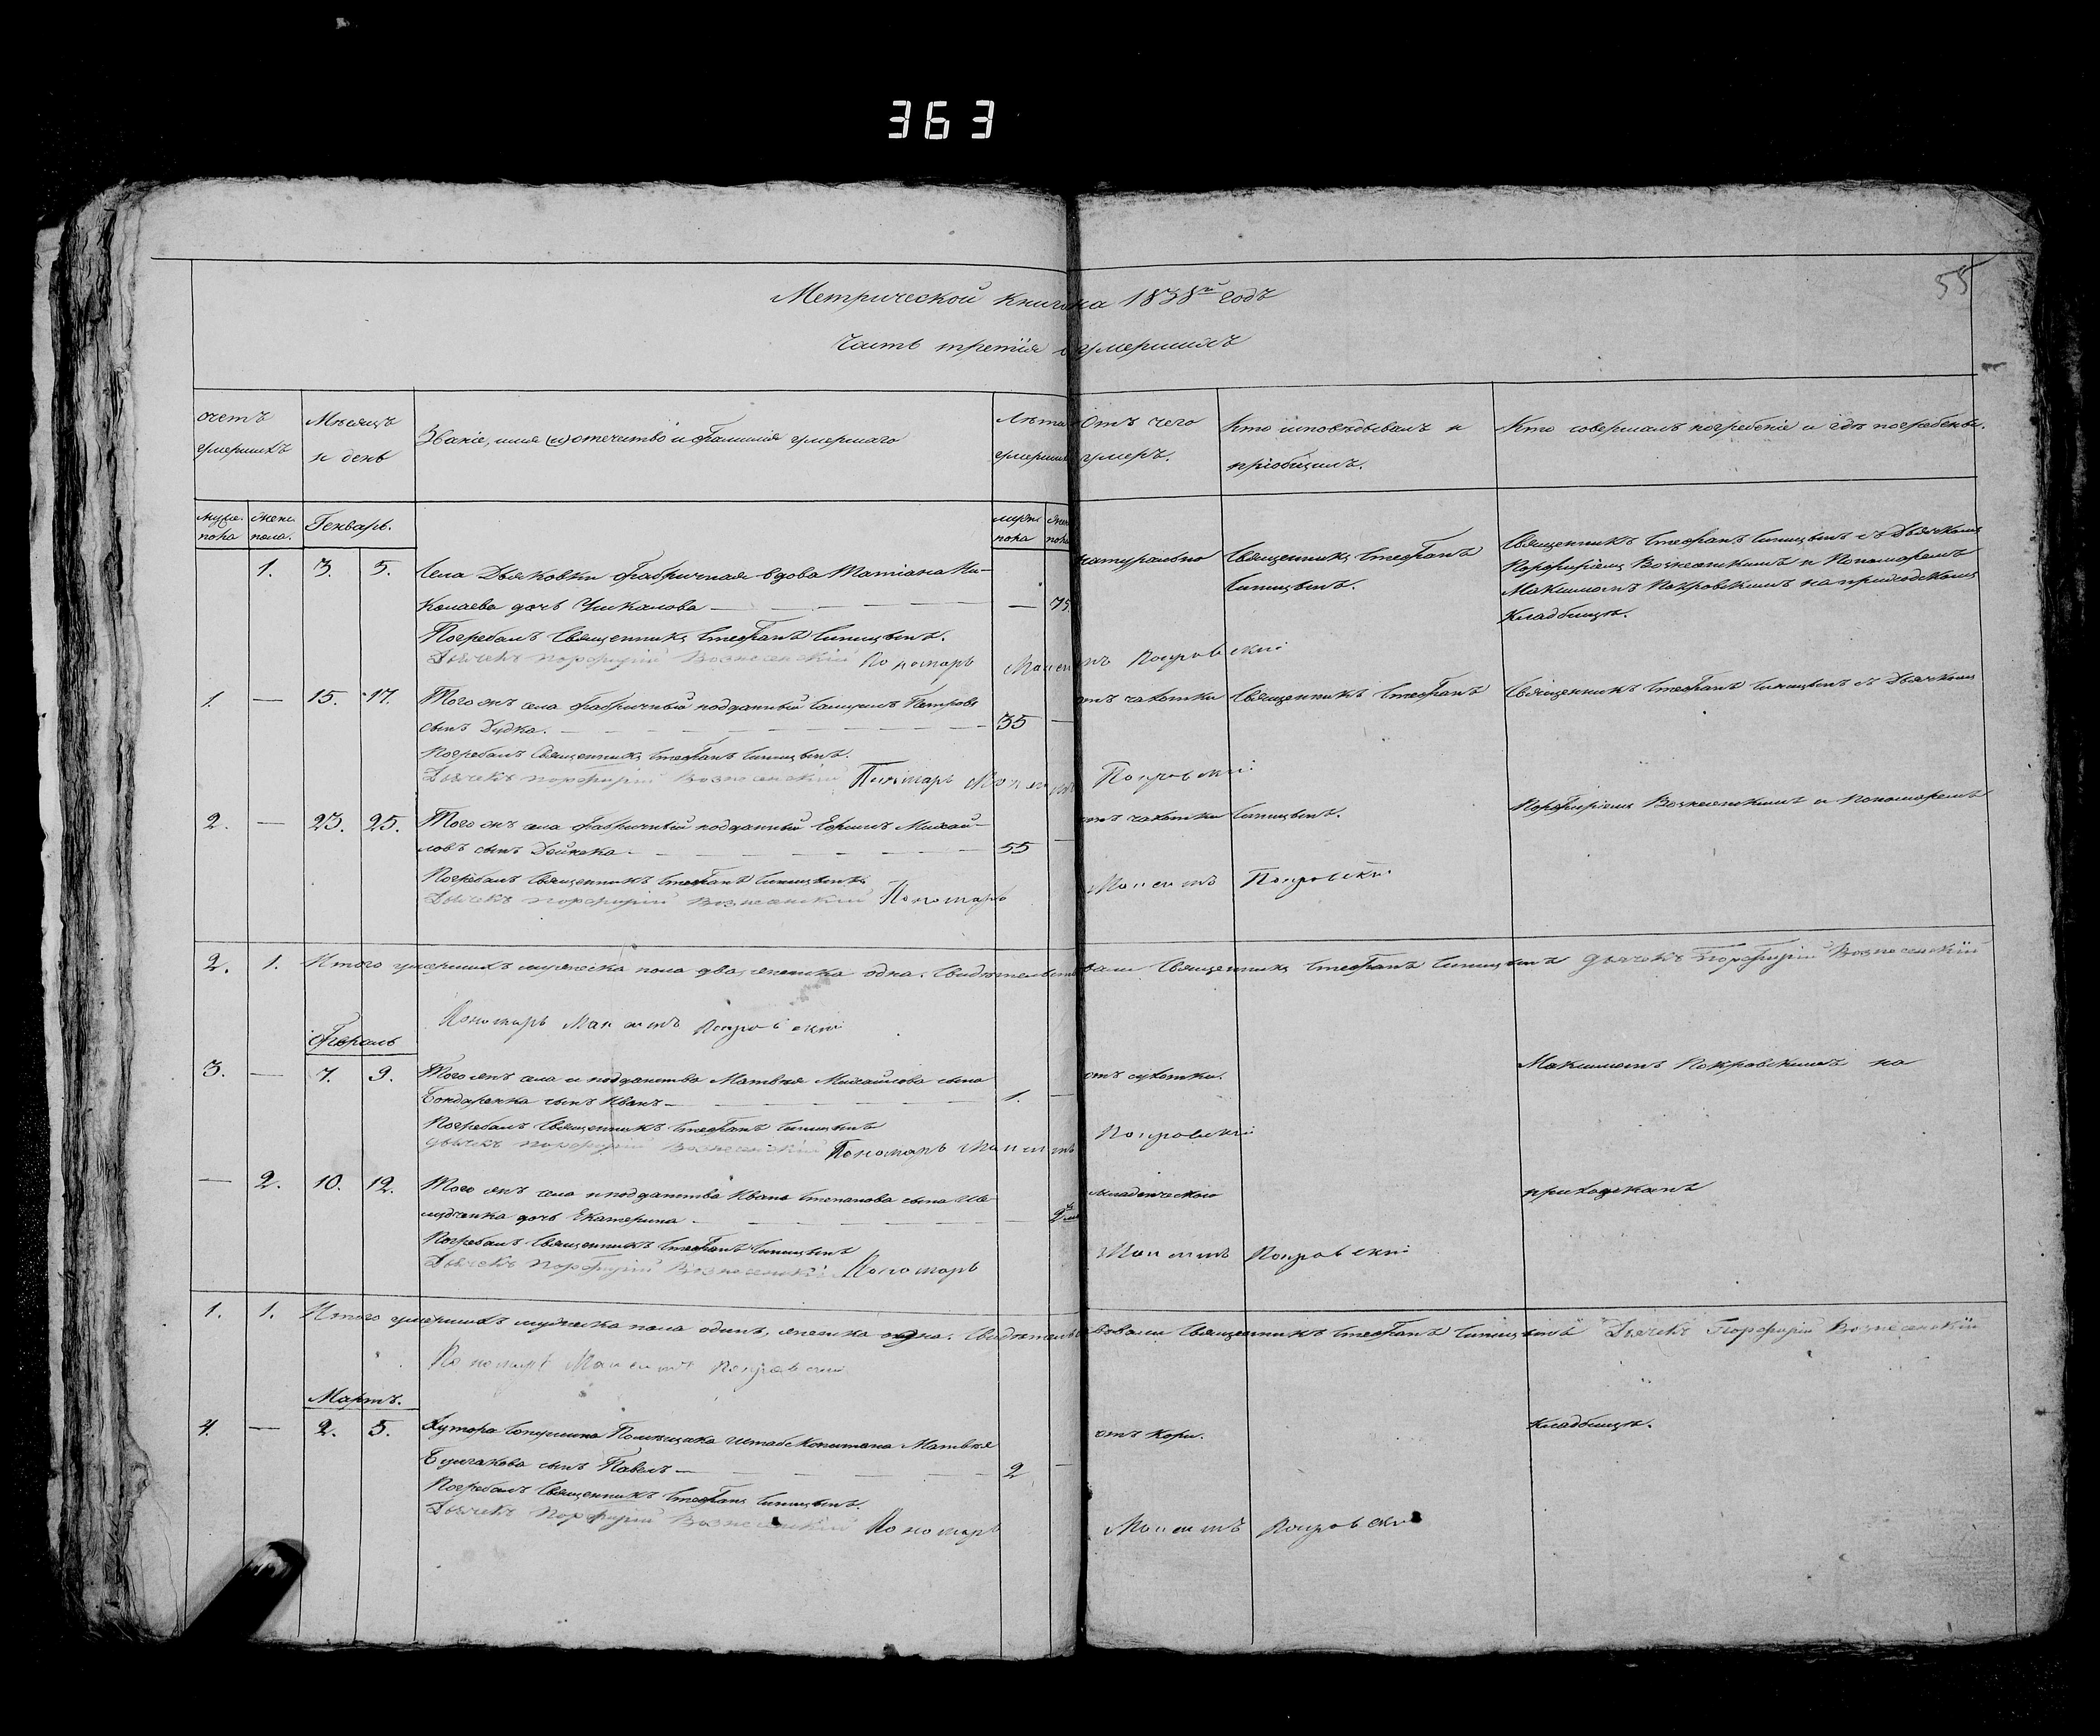 363
55
Метрической книги на 1838й годъ
Часть третія о умершихъ
счетъ умершихъ
Мѣсяцъ и день
Званіе, имя (и) отечество и фамилія умершаго
Лѣта умершихъ
Отъ чего умеръ.
Кто исповѣдывалъ и пріобщилъ.
Кто совершалъ погребеніе и гдѣ погребены.
муже. пола
женс. пола.
Генварь.
муже пола
жен пола
1. 3. 5. Села Дьяковки фабричная вдова Татіана Ни-
колаева дочь Чикалова — 75.
натурально
Священникъ Стефанъ
Синицынъ.
Священникъ Стефанъ Синицынъ съ Дьячкомъ
Порфиріемъ Вознесенскимъ и Пономаремъ
Максимомъ Покровскимъ на приходскомъ
кладбищѣ.
Погребалъ Священникъ Стефанъ Синицынъ.
Дьячекъ Порфирій Вознесенскій Пономарь Максимъ Покровскій
1. — 15. 17. Того жъ села фабричный подданный Петровъ
сынъ Дудка. — 35 —
отъ чахотки
Священникъ Стефанъ
Священникъ Стефанъ Синицынъ съ Дьячкомъ
Погребалъ Священникъ Стефанъ Синицынъ.
Дьячекъ Порфирій Вознесенскій Пономарь Максимъ Покровскій
2. — 23. 25. Того жъ села фабричный подданный Ефимъ Михай-
ловъ сынъ Дейнека — 55 —
отъ чахотки
Синицынъ.
Порфиріемъ Вознесенскимъ и Пономаремъ
Погребалъ Священникъ Стефанъ Синицынъ
Дьячекъ Порфирій Вознесенскій Пономарь Максимъ Покровскій
2. 1. Итого умершихъ мужеска пола два, женска одна. Свидѣтельствовали Священникъ Стефанъ Синицынъ Дьячекъ Порфирій Вознесенскій
Пономарь Максимъ Покровскій
Февраль
3. — 7. 9. Того жъ села и подданства Матвѣя Михайлова сына
Бондаренка сынъ Иванъ — 1. —
отъ сухотки.
Максимомъ Покровскимъ на
Погребалъ Священникъ Стефанъ Синицынъ
Дьячекъ Порфирій Вознесенскій Пономарь Максимъ Покровскій
— 2. 10. 12. Того жъ села и подданства Ивана Степанова сына
дочь Екатерина —
младенческою
приходскомъ
Погребалъ Священникъ Стефанъ Синицынъ
Дьячекъ Порфирій Вознесенскій Пономарь Максимъ Покровскій
1. 1. Итого умершихъ мужеска пола одинъ, женска одна. Свидѣтельствовали Священникъ Стефанъ Синицынъ Дьячекъ Порфирій Вознесенскій
Пономарь Максимъ Покровскій
Мартъ.
4. — 2. 5. Хутора Помѣщика Штабс Капитана Матвѣя
сынъ Павелъ — 2 —
отъ кори.
кладбищѣ.
Погребалъ Священникъ Стефанъ Синицынъ.
Дьячекъ Порфирій Вознесенскій Пономарь Максимъ Покровскій